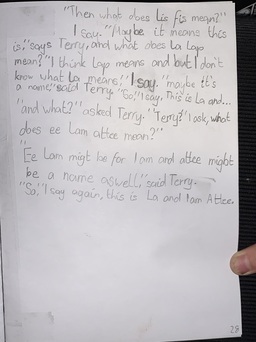 "Then what does Lis fis mean?"
I say. "Maybe it means this
is," says Terry, and what does La Lap
mean?" I think Lap means and but I don't
know what La means," I say. "maybe it's
a name," said Terry. "So," I say, This is La and...
"and what?" asked Terry. "Terry?" I ask, what
does ee Lam attee mean?"
"Ee Lam migt be for I am and attee might
be a name aswell," said Terry.
"So," I say again, this is La and I am Attee.
28